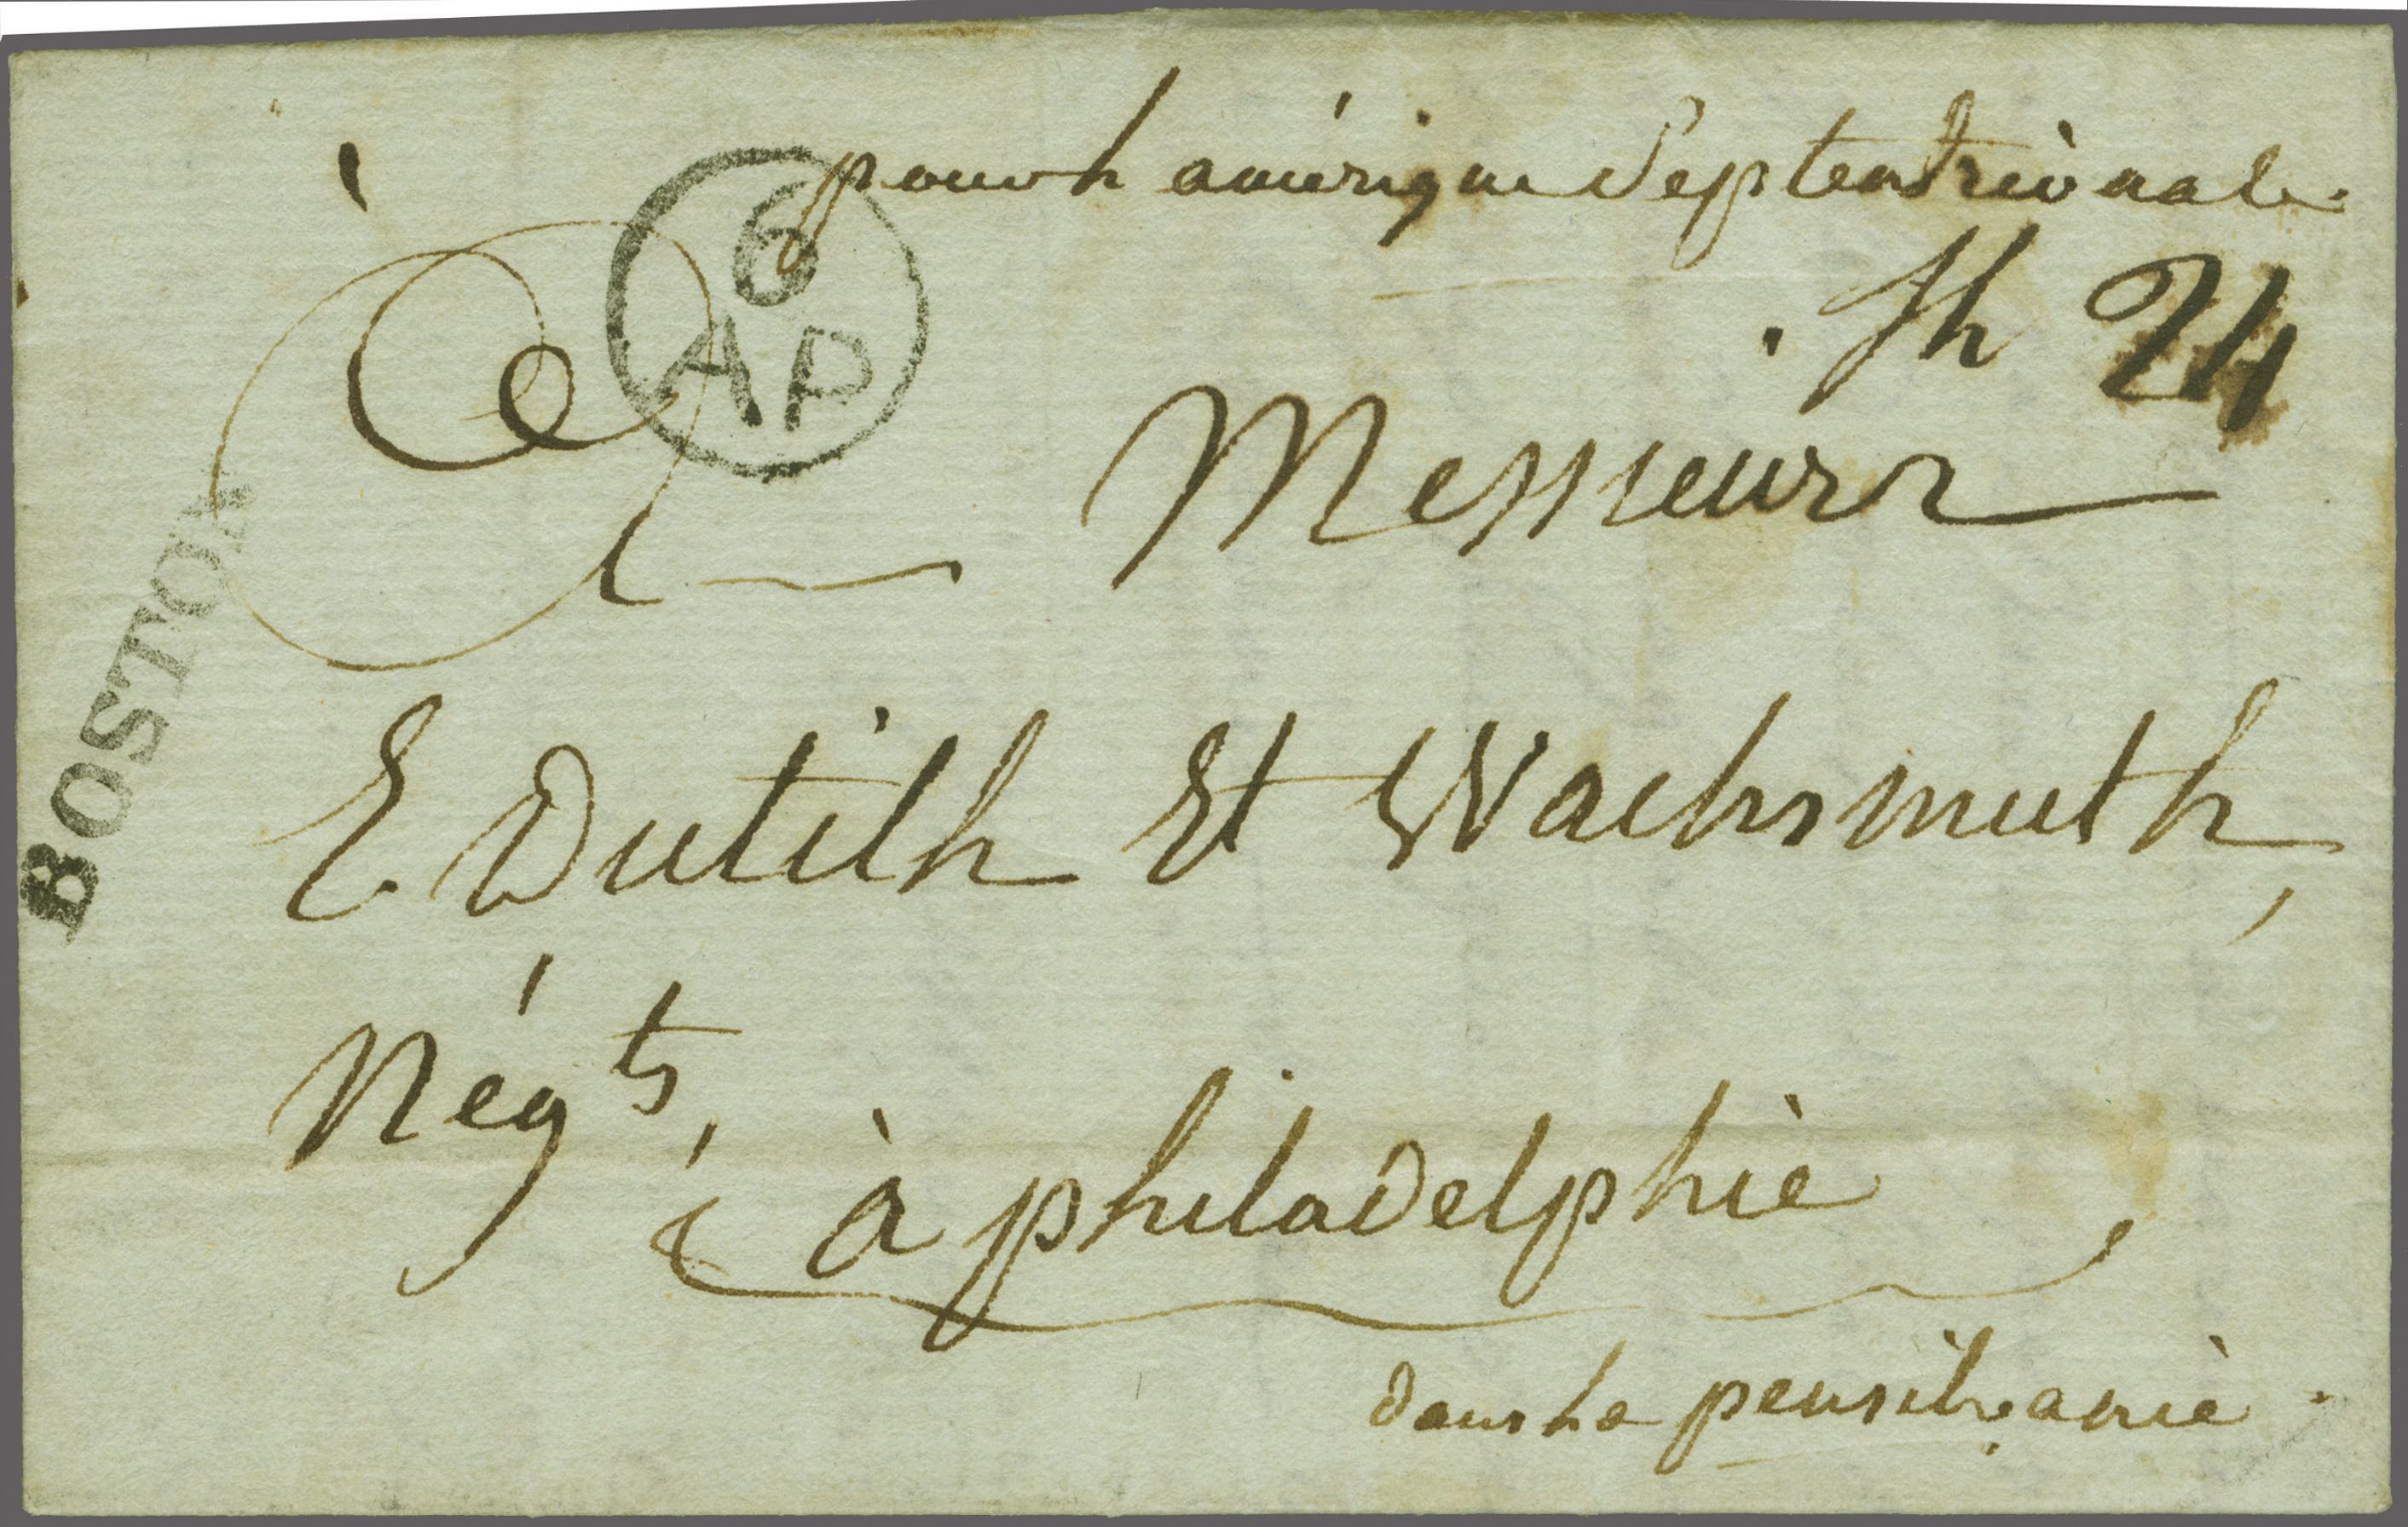 pour l'amérique Septentrionale.
6
AP
Sh 24
Messieurs
BOSTON
E Dutilh Et Wachsmuth,
Nég.ts,
à philadelphie
dans la pensilvanie.